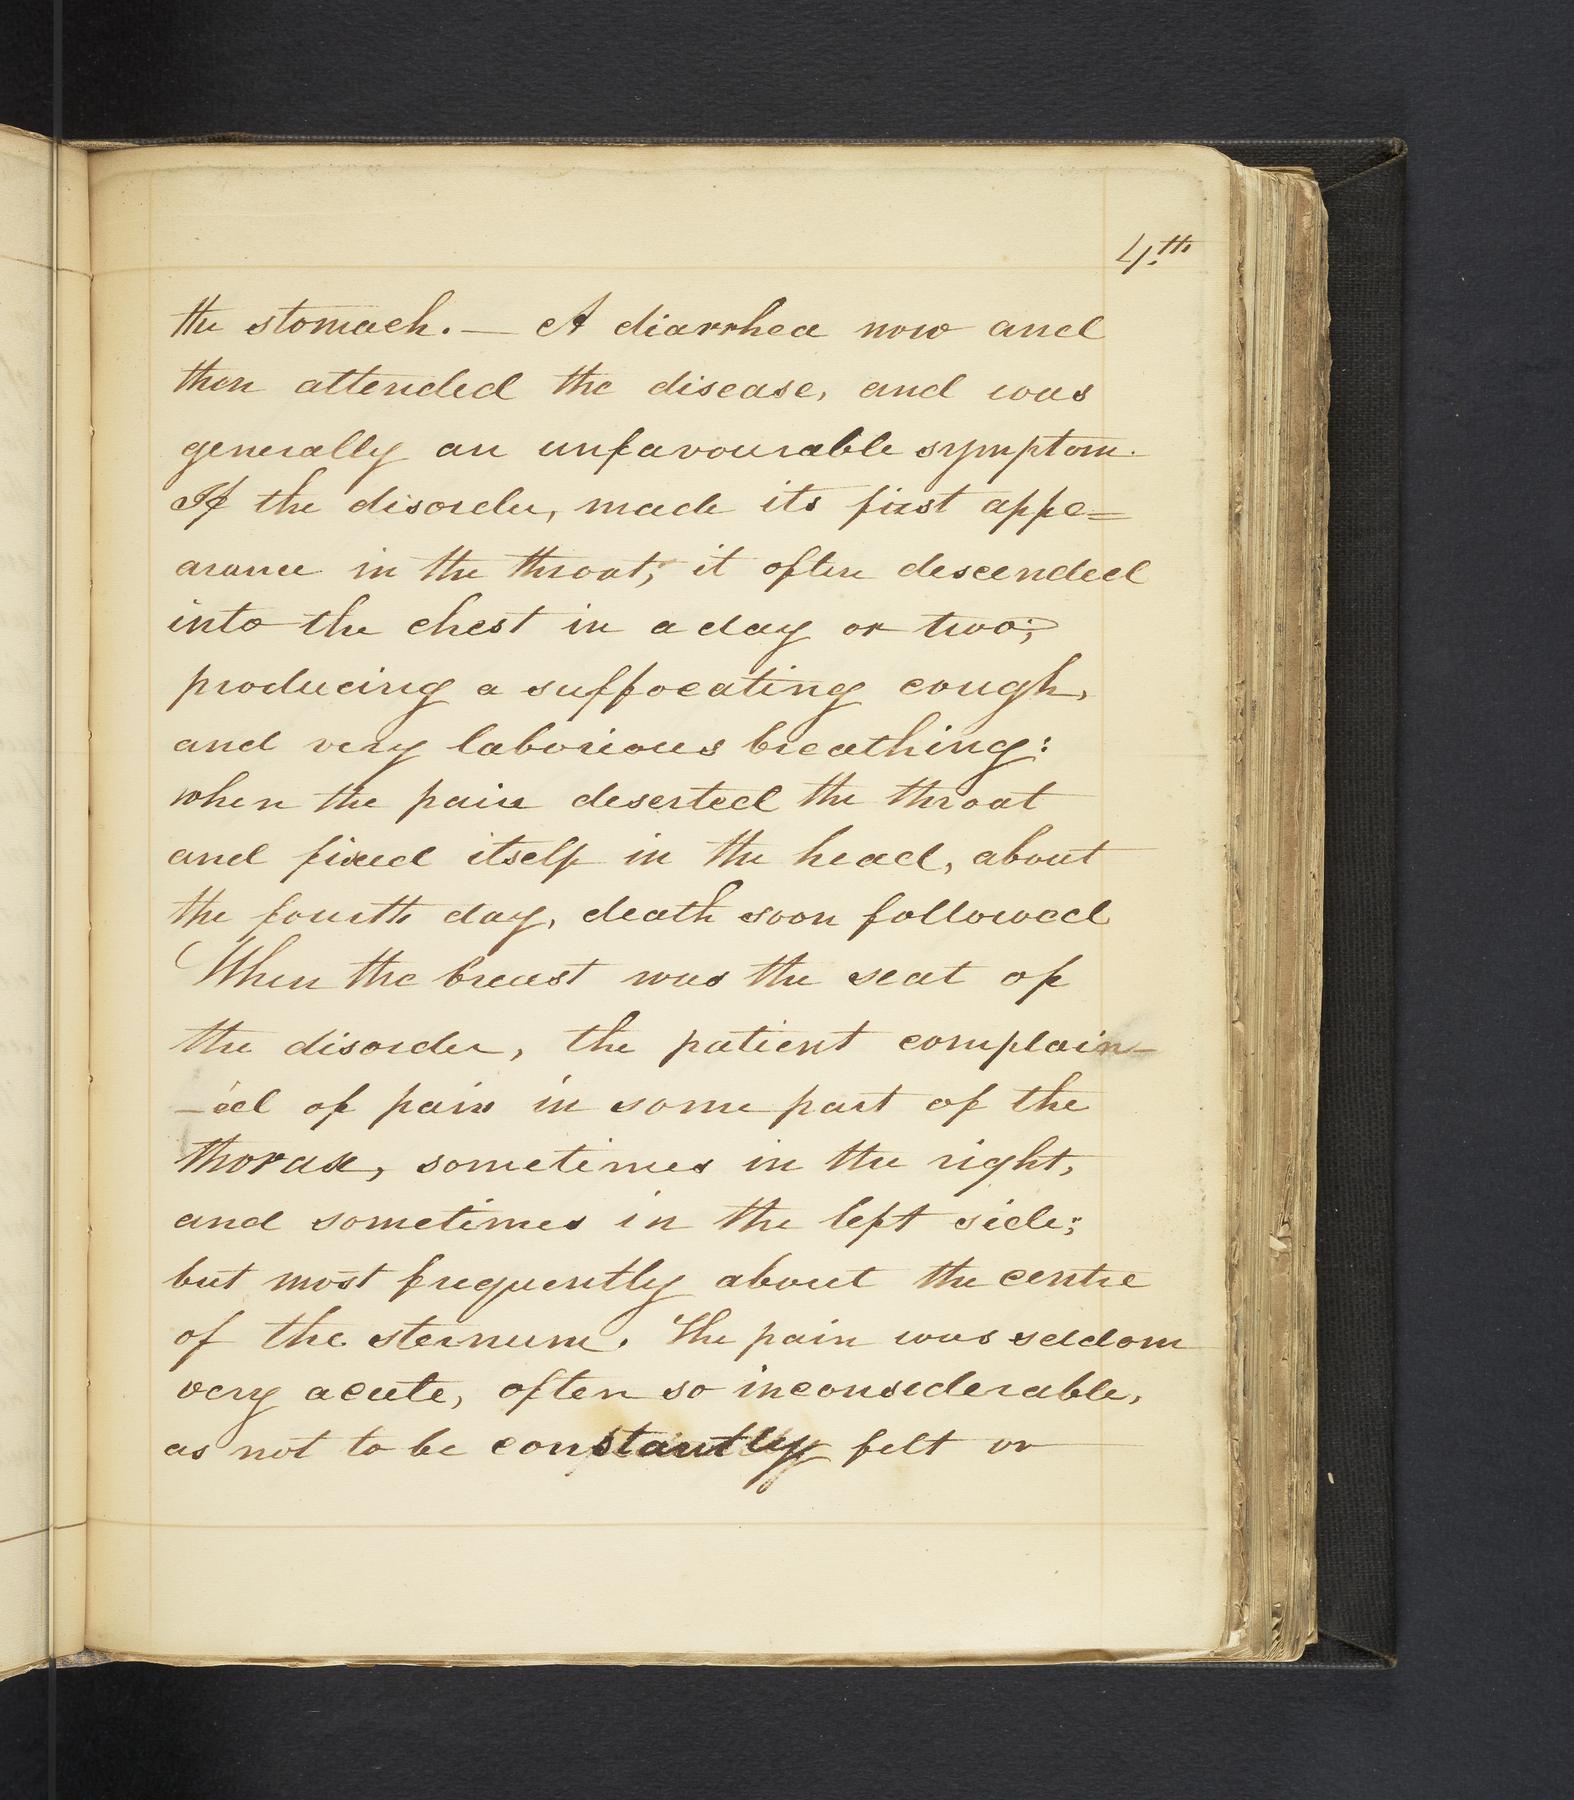 4.th
the stomach. — A diarrhea now and
then attended the disease, and was
generally an unfavourable symptom.
If the disorder, made its first appe=
arance in the throat; it often descended
into the chest in a day or two;
producing a suffocating cough,
and very laborious breathing:
when the pain deserted the throat
and fixed itself in the head, about
the fourth day, death soon followed
When the breast was the seat of
the disorder, the patient complain-
-ed of pain in some part of the
thorax, sometimes in the right,
and sometimes in the left side;
but most frequently about the centre
of the sternum. The pain was seldom
very acute, often so inconsiderable,
as not to be constantly felt or